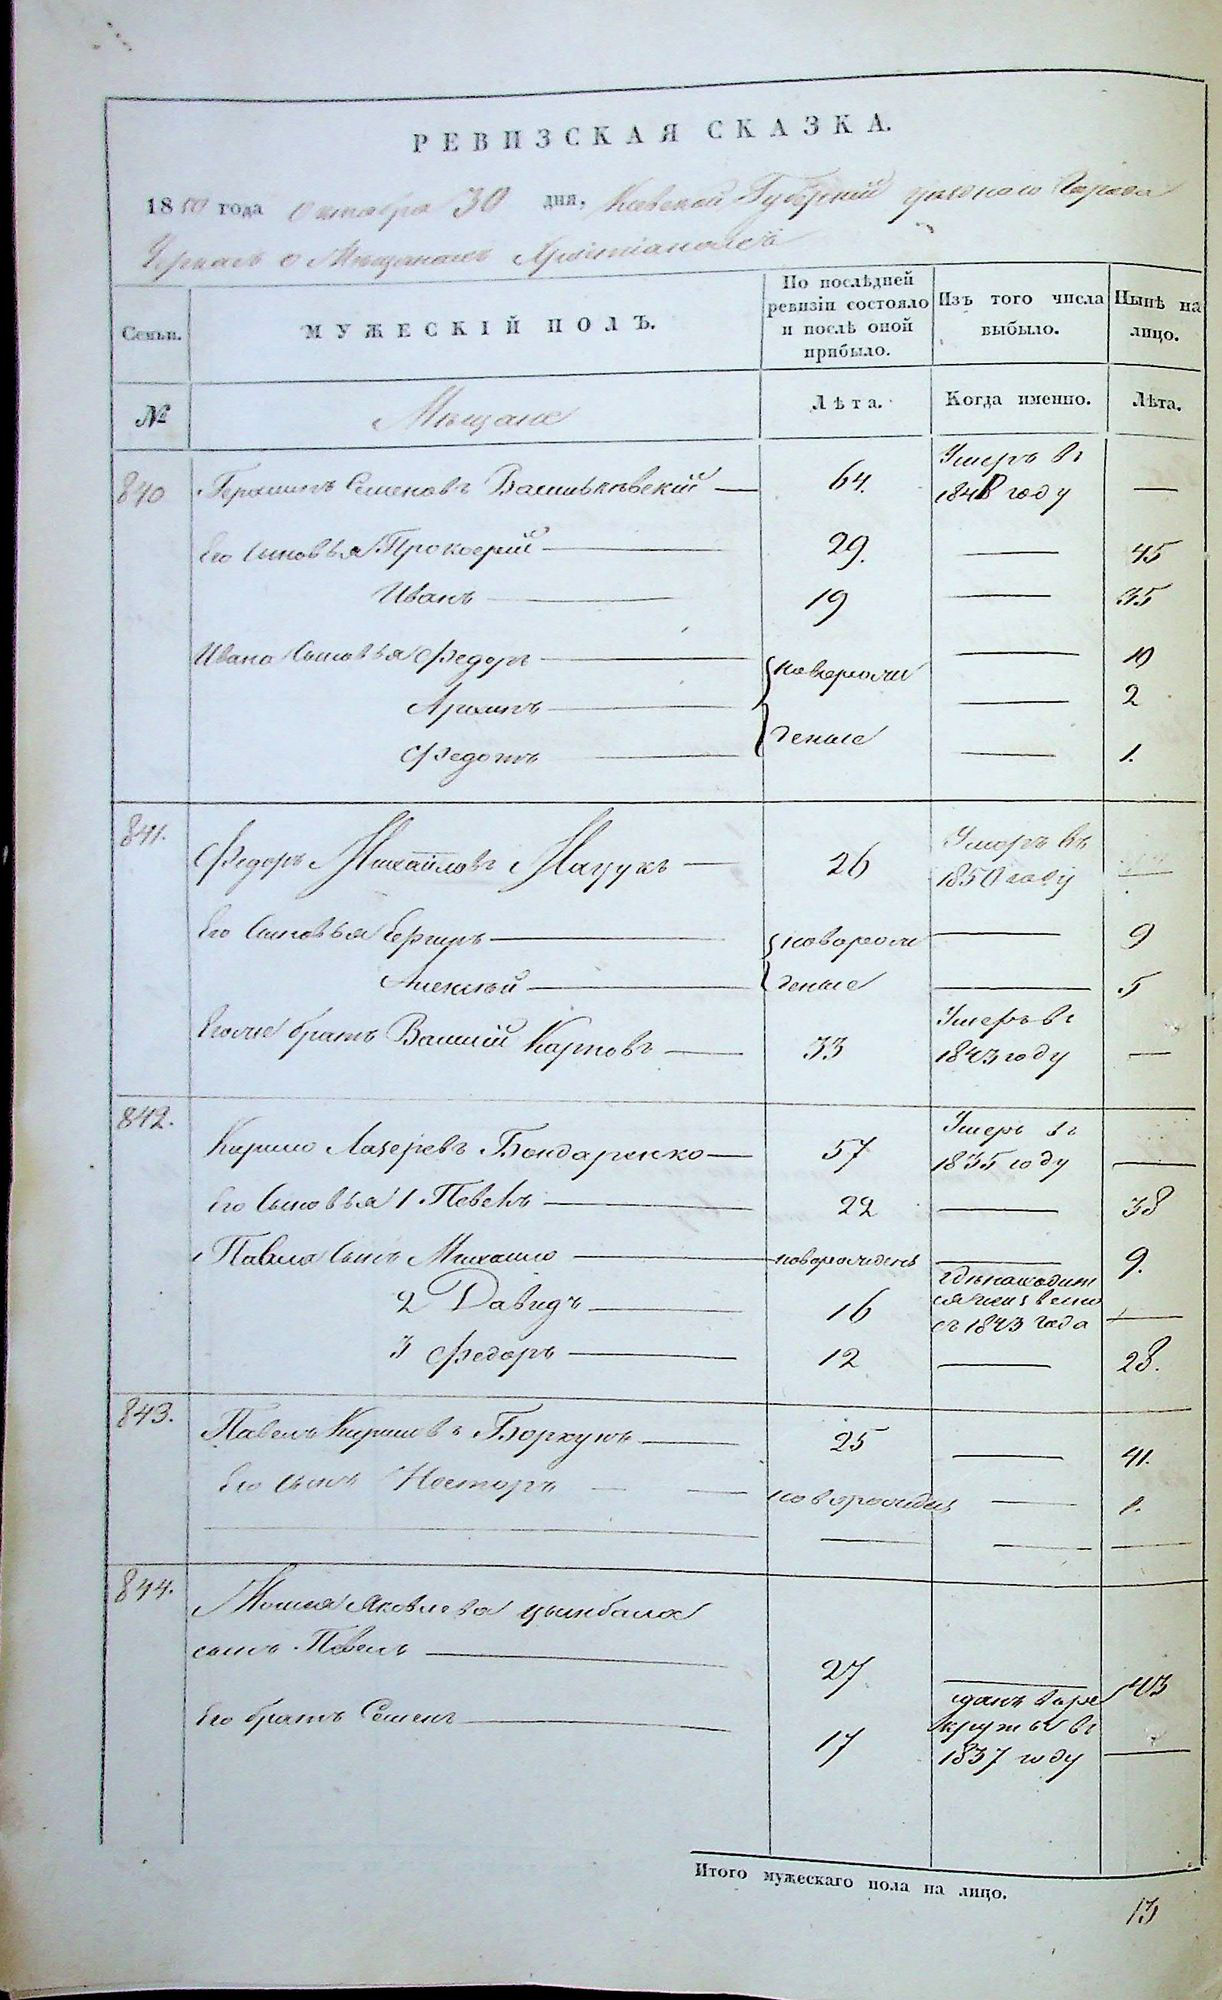 РЕВИЗСКАЯ СКАЗКА.
1850 года Октября 30 дня, Киевской Губерніи уѣзднаго Города
Черкасъ о Мѣщанахъ Христіанахъ
Семьи.
МУЖЕСКІЙ ПОЛЪ.
По послѣдней ревизіи состояло и послѣ оной прибыло.
Изъ того числа выбыло.
Нынѣ на лицо.
№
Мѣщане
Лѣта.
Когда именно.
Лѣта.
840 Герасимъ Семеновъ Васильковскій — 64. Умеръ въ 1848 году —
Его Сыновья Прокофій — 29. — 45
Иванъ — 19 — 35
Ивана Сыновья Федоръ — новорож — 10
Архипъ — — 2
Федотъ — денные — 1.
841. Федоръ Михайловъ Мацукъ — 26 Умеръ въ 1850 году —
Его Сыновья Сергѣй — новорож — 9
Алексѣй — денные — 5
Его же братъ Василій Карповъ — 33 Умеръ въ 1843 году —
842. Кирило Лазеревъ Бондаренко — 57 Умеръ въ 1835 году —
Его Сыновья 1. Павелъ — 22 — 38
Павла Сынъ Михайло — новорожденъ — 9.
2 Давидъ — 16 гдѣ находит ся неизвѣстно съ 1843 года —
3 Федоръ — 12 — 28.
843. Павелъ Кириловъ Боркунъ — 25 — 41.
Его Сынъ Несторъ — новорожден — 1.
844. Яковлева Цымбала
сынъ Павелъ — 27 — 43
Его братъ Семенъ — 17 сданъ въ ре круты въ 1837 году —
Итого мужескаго пола на лицо.
13